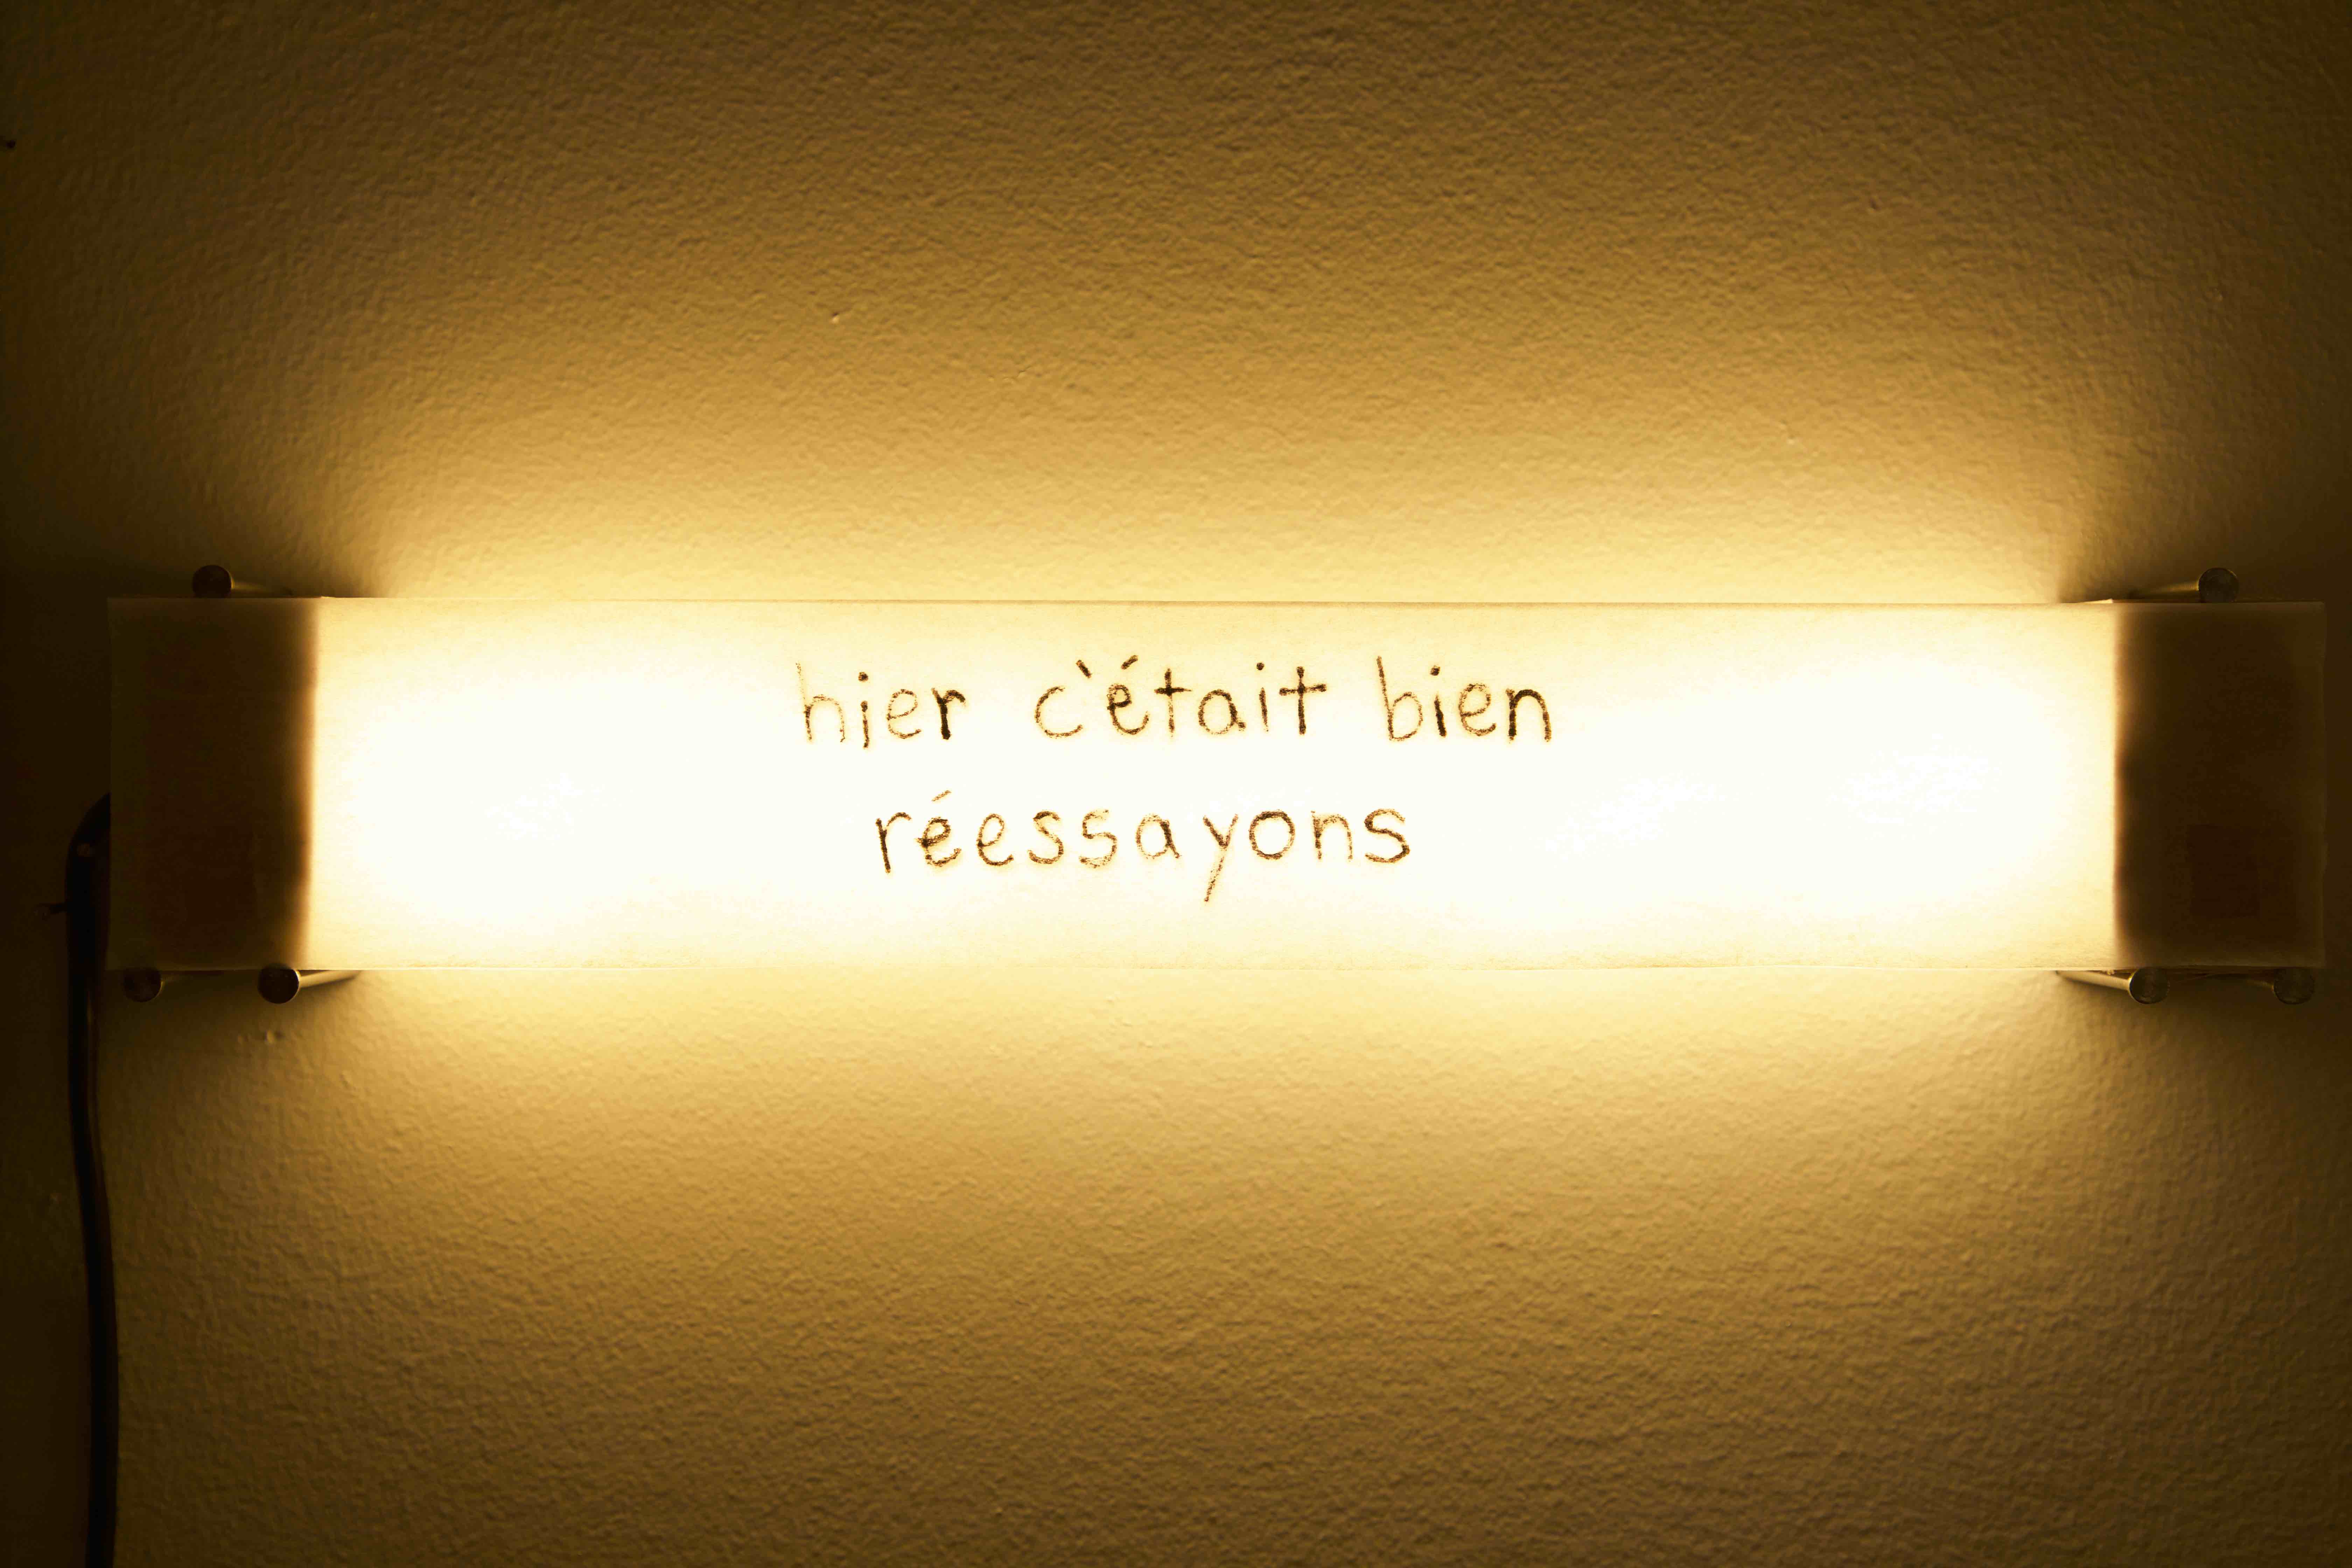 hier c'était bien
réessayons